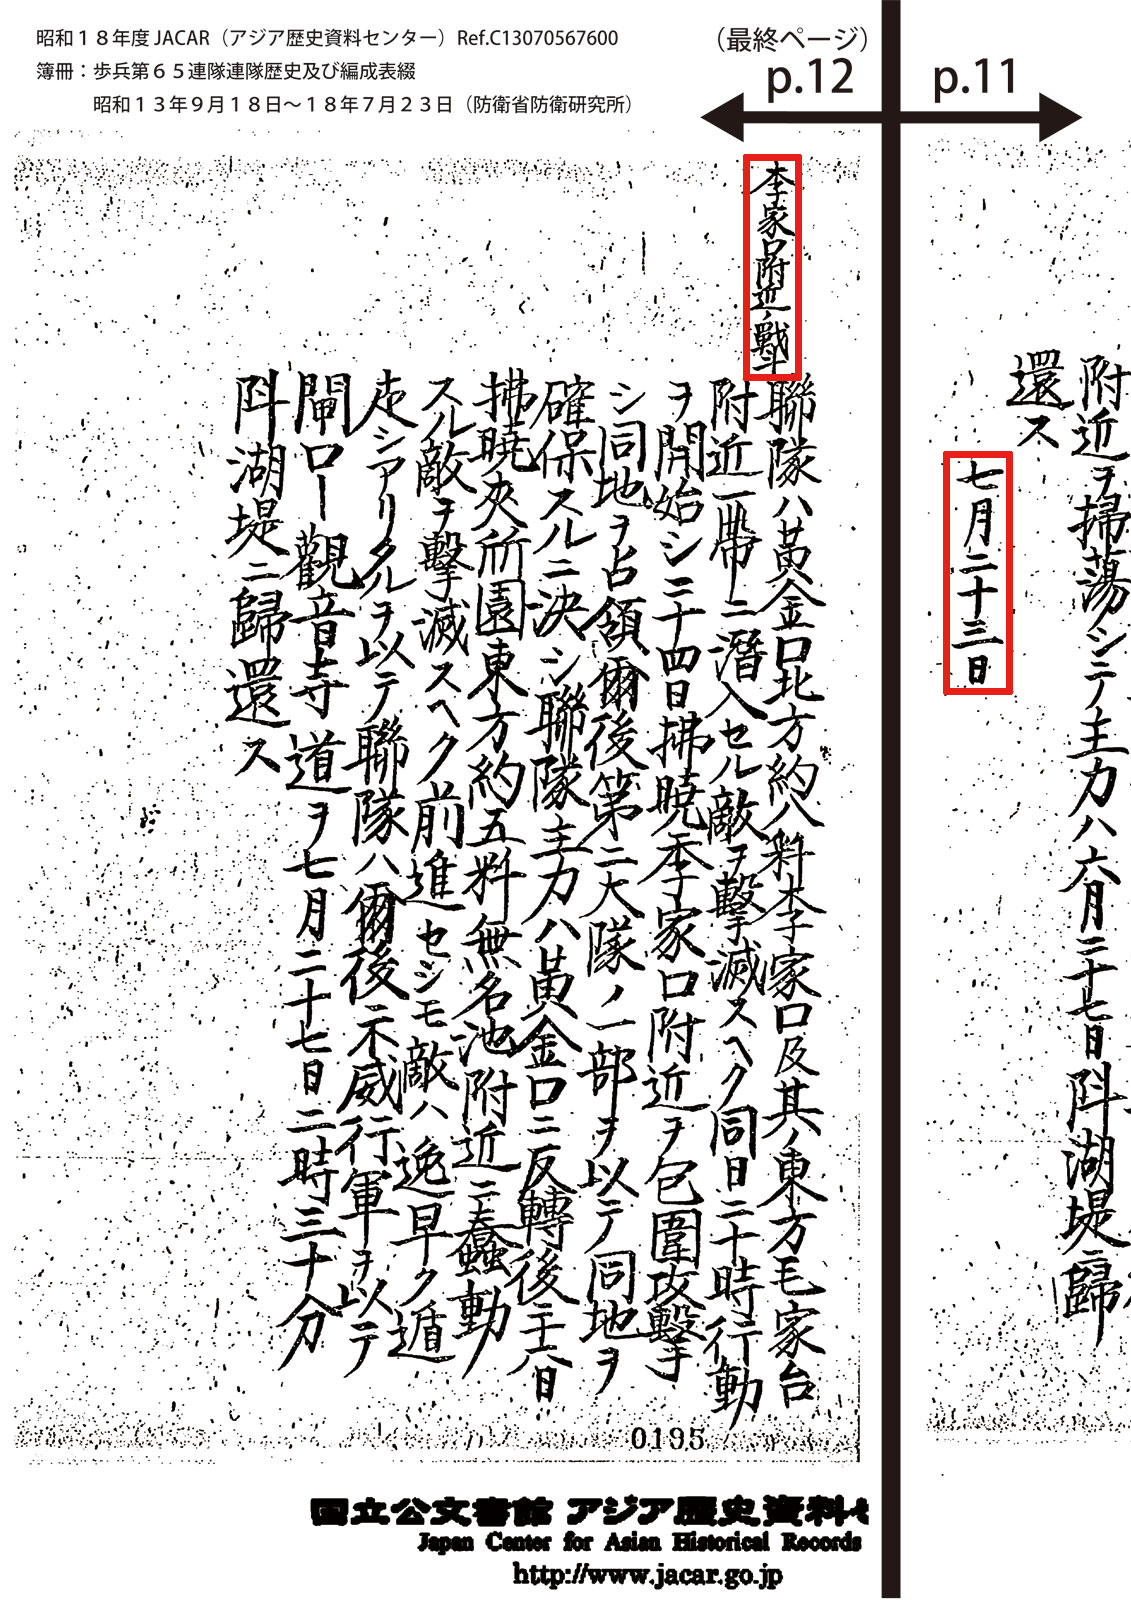 昭和１８年度 JACAR（アジア歴史資料センター）Ref.C13070567600
簿冊：歩兵第６５連隊連隊歴史及び編成表綴
昭和１３年９月１８日〜１８年７月２３日（防衛省防衛研究所）
（最終ページ）
p.12
p.11
附近ヲ掃蕩シテ主力ハ六月二十七日阧湖堤ニ歸
還ス
七月二十三日
李家口附近ノ戰斗
聯隊ハ黄金口北方約八粁李家口及其ノ東方毛家台
附近一帶ニ潛入セル敵ヲ撃滅スヘク同日二十時行動
ヲ開始シ二十四日拂曉李家口附近ヲ包圍攻撃
シ同地ヲ占領爾後第二大隊ノ一部ヲ以テ同地ヲ
確保スルニ決シ聯隊主力ハ黄金口ニ反轉後二十六日
拂曉夾所園東方約五粁無名池附近ニ蠢動
スル敵ヲ撃滅スヘク前進セシモ敵ハ逸早ク遁
走シアリタルヲ以テ聯隊ハ爾後示威行軍ヲ以テ
閘口ー觀音寺道ヲ七月二十七日二時三十分
阧湖堤ニ歸還ス
0195
国立公文書館 アジア歴史資料セ
Japan Center for Asian Historical Records
http://www.jacar.go.jp